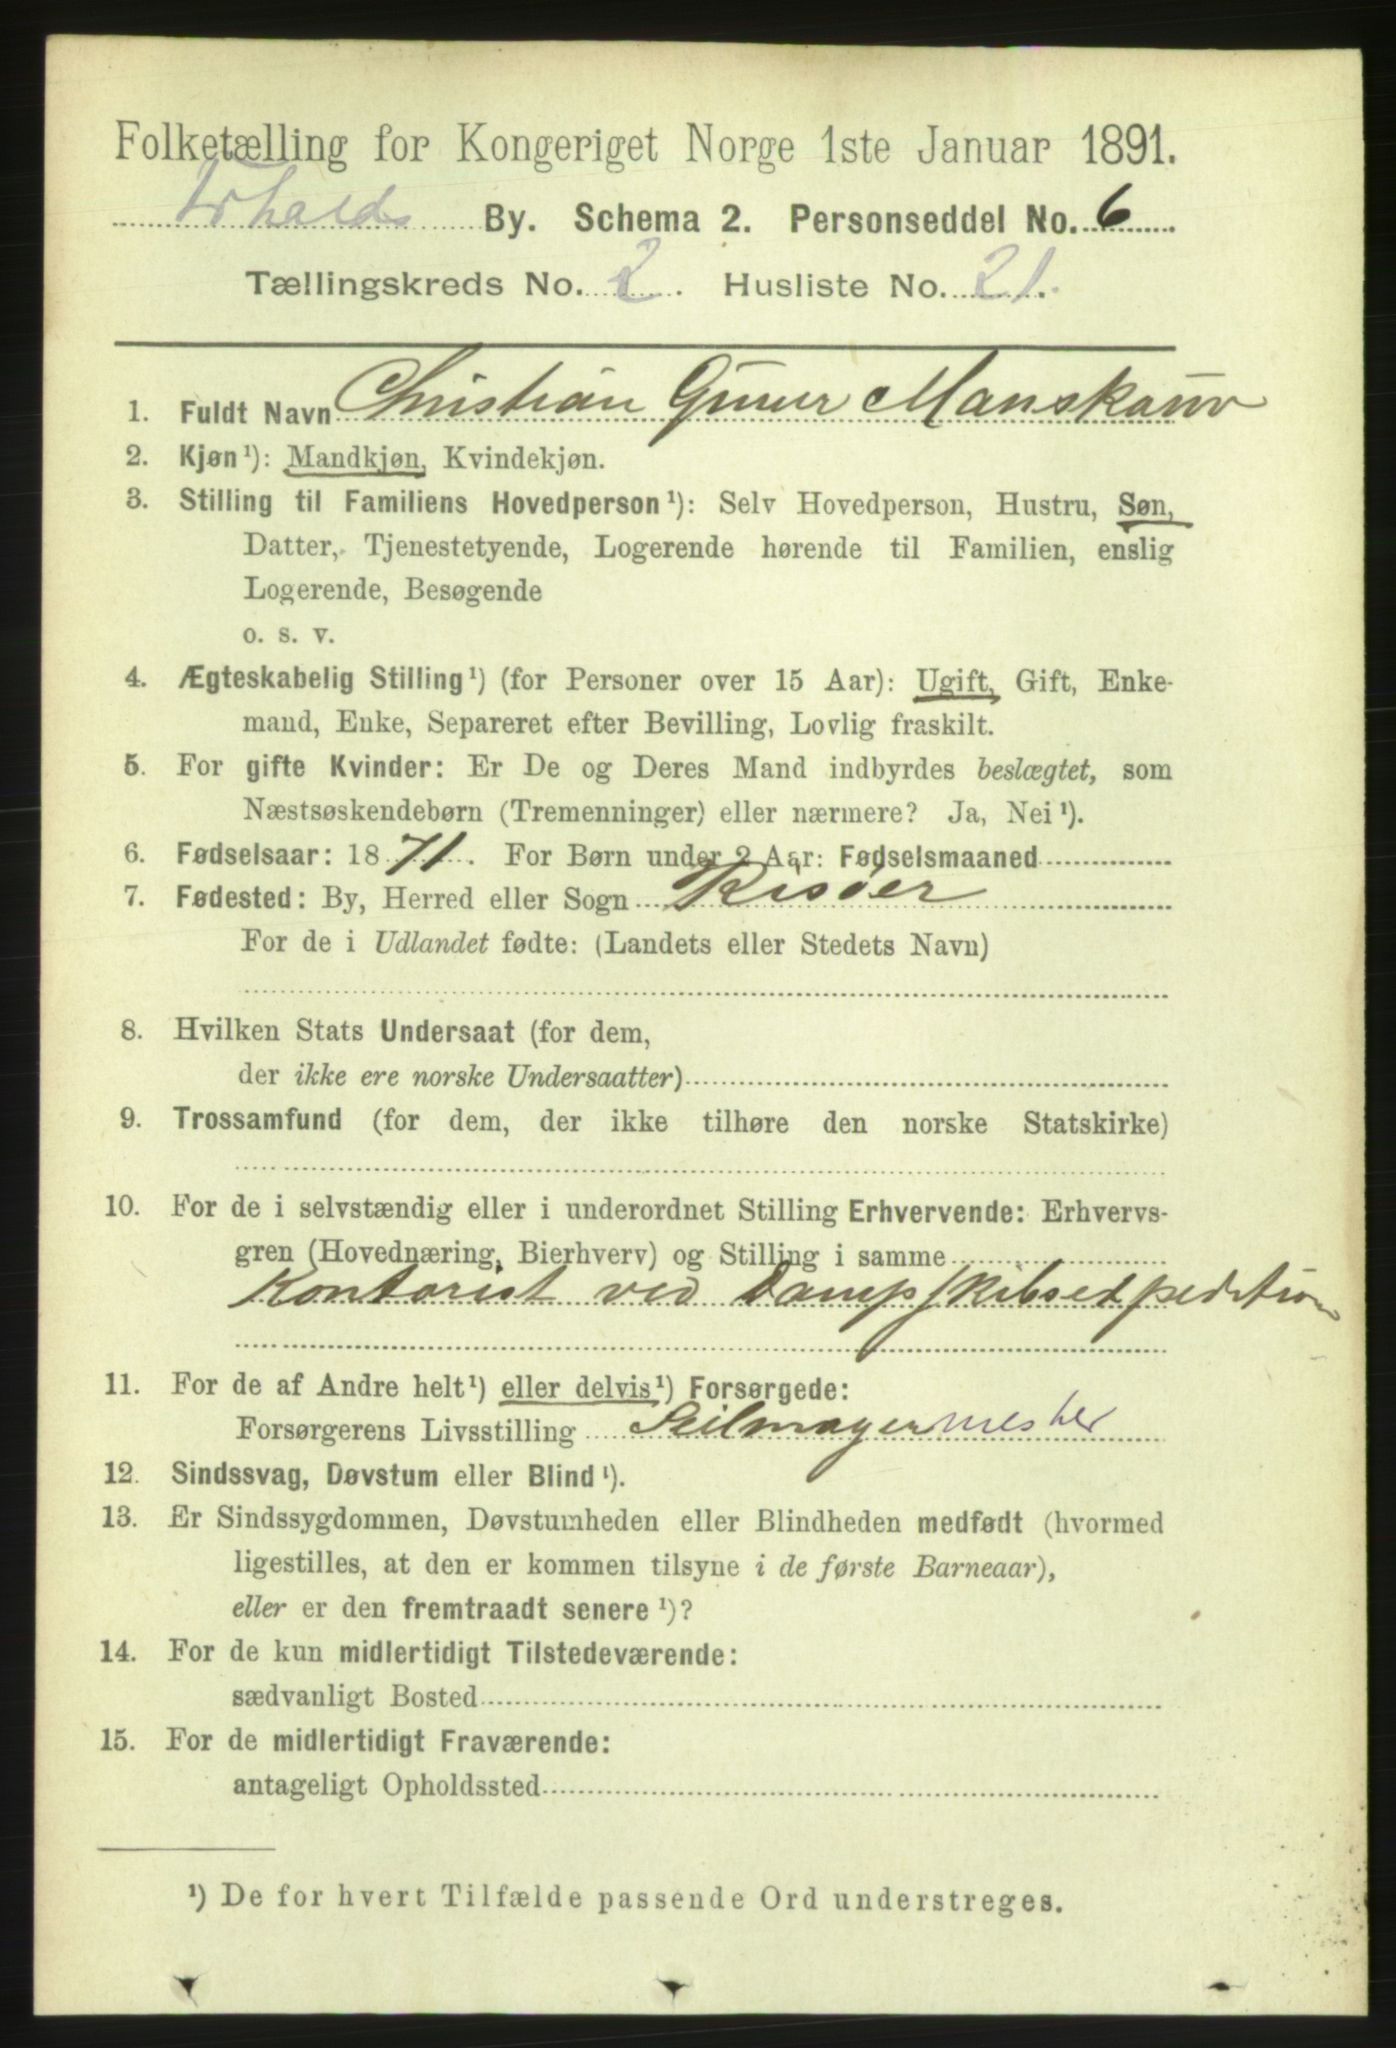 Folketælling for Kongeriget Norge 1ste Januar 1891.
By. Schema 2. Personseddel No. 6
Tællingskreds No. 2. Husliste No. 21.
1. Fuldt Navn Christian Manskow
2. Kjøn¹): Mandkjøn, Kvindekjøn.
3. Stilling til Familiens Hovedperson¹): Selv Hovedperson, Hustru, Søn,
Datter, Tjenestetyende, Logerende hørende til Familien, enslig
Logerende, Besøgende
o. s. v.
4. Ægteskabelig Stilling¹) (for Personer over 15 Aar): Ugift, Gift, Enke-
mand, Enke, Separeret efter Bevilling, Lovlig fraskilt.
5. For gifte Kvinder: Er De og Deres Mand indbyrdes beslægtet, som
Næstsøskendebørn (Tremenninger) eller nærmere? Ja, Nei¹).
6. Fødselsaar: 1871. For Børn under 2 Aar: Fødselsmaaned
7. Fødested: By, Herred eller Sogn Risöer
For de i Udlandet fødte: (Landets eller Stedets Navn)
8. Hvilken Stats Undersaat (for dem,
der ikke ere norske Undersaatter)
9. Trossamfund (for dem, der ikke tilhøre den norske Statskirke)
10. For de i selvstændig eller i underordnet Stilling Erhvervende: Erhvervs-
gren (Hovednæring, Bierhverv) og Stilling i samme
Kontorist ved Dampskibsexpedition
11. For de af Andre helt¹) eller delvis¹) Forsørgede:
Forsørgerens Livsstilling Seilmagermester
12. Sindssvag, Døvstum eller Blind¹).
13. Er Sindssygdommen, Døvstumheden eller Blindheden medfødt (hvormed
ligestilles, at den er kommen tilsyne i de første Barneaar),
eller er den fremtraadt senere¹)?
14. For de kun midlertidigt Tilstedeværende:
sædvanligt Bosted
15. For de midlertidigt Fraværende:
antageligt Opholdssted
¹) De for hvert Tilfælde passende Ord understreges.